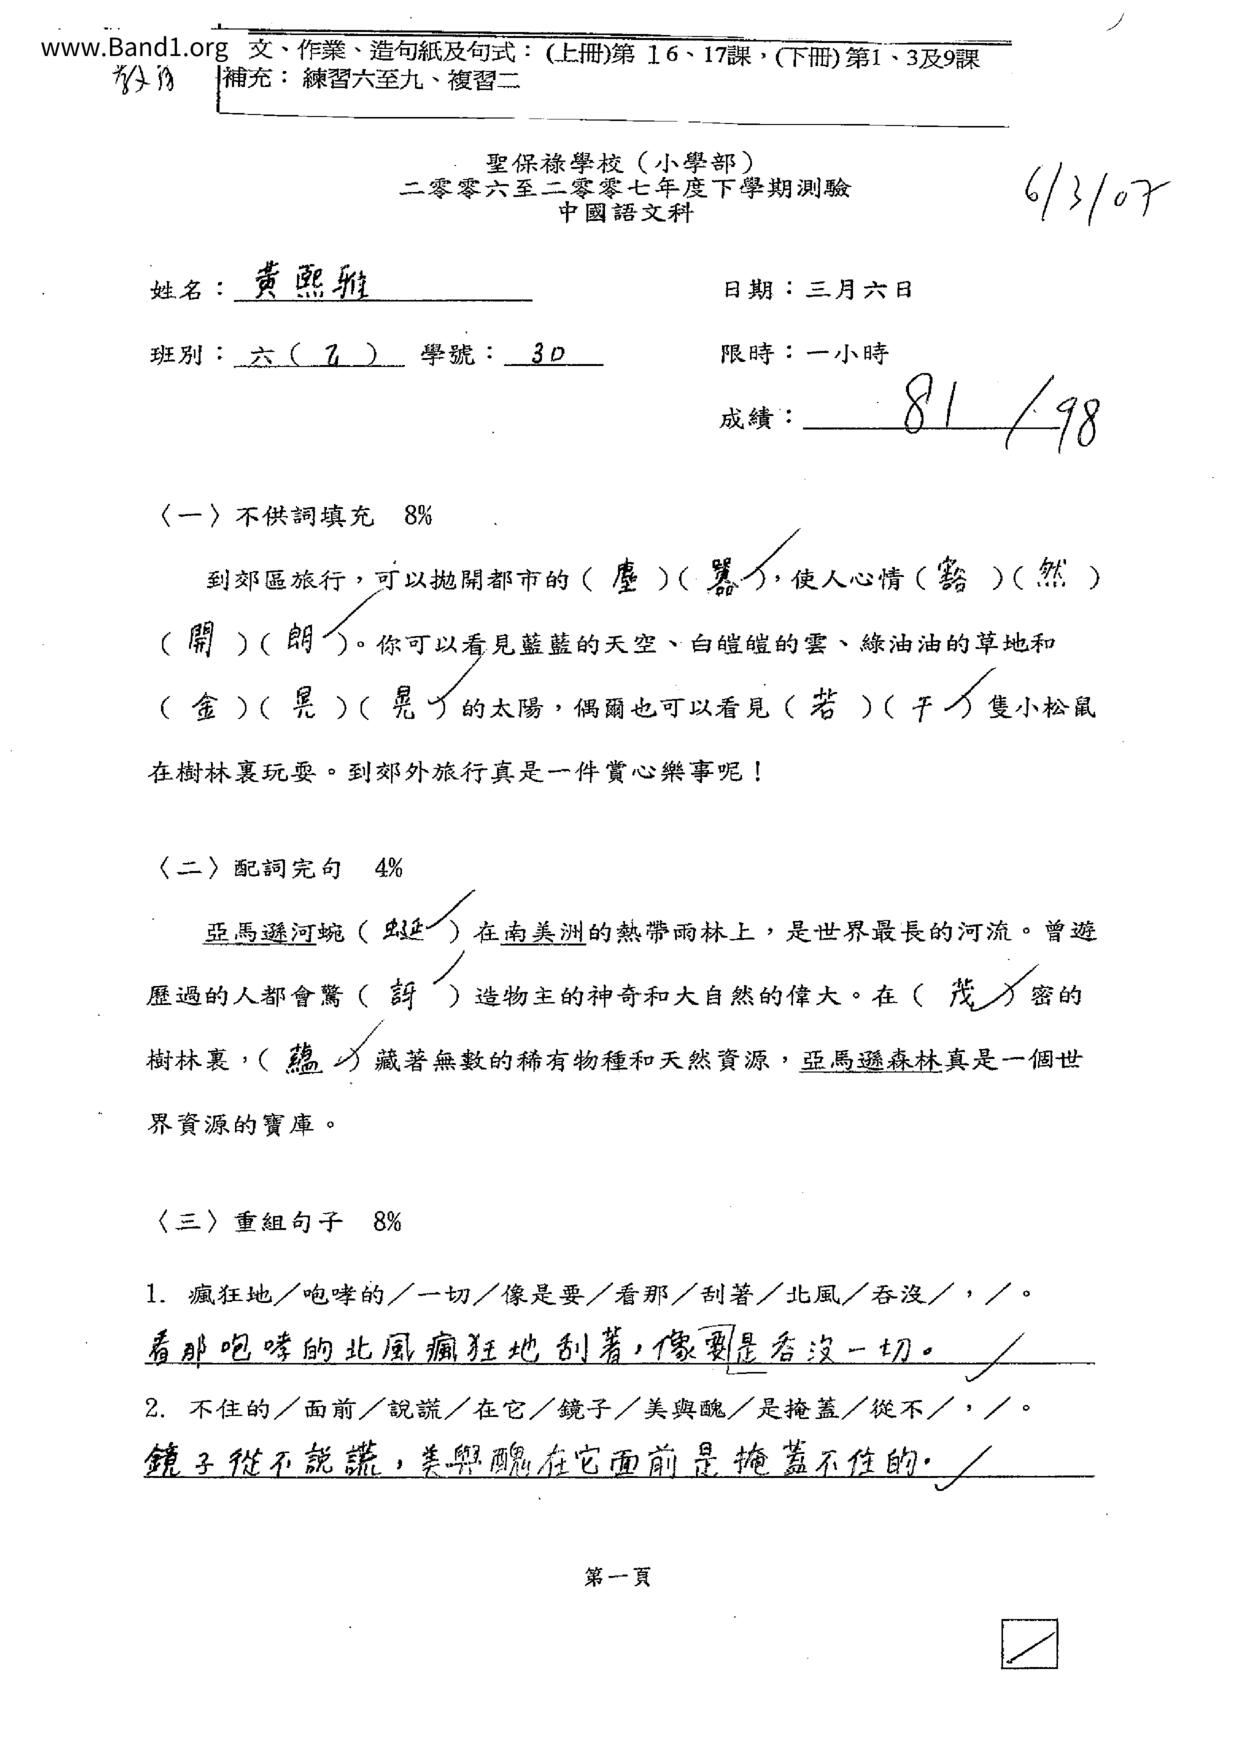 www.Band1.org 文、作業、造句紙及句式：(上冊)第 16、17課，(下冊)第1、3及9課
補充： 練習六至九、複習二
聖保祿學校（小學部）
二零零六至二零零七年度下學期測驗
中國語文科
6/3/07
姓名：黃熙雅 日期：三月六日
班別：六（乙） 學號：30 限時：一小時
成績：81/98
〈一〉不供詞填充 8%
到郊區旅行，可以拋開都市的（塵）（囂），使人心情（豁）（然）
（開）（朗）。你可以看見藍藍的天空、白皚皚的雲、綠油油的草地和
（金）（晃）（晃）的太陽，偶爾也可以看見（若）（干）隻小松鼠
在樹林裏玩耍。到郊外旅行真是一件賞心樂事呢！
〈二〉配詞完句 4%
亞馬遜河蜿（蜒）在南美洲的熱帶雨林上，是世界最長的河流。曾遊
歷過的人都會驚（訝）造物主的神奇和大自然的偉大。在（茂）密的
樹林裏，（蘊）藏著無數的稀有物種和天然資源，亞馬遜森林真是一個世
界資源的寶庫。
〈三〉重組句子 8%
1. 瘋狂地／咆哮的／一切／像是要／看那／刮著／北風／吞沒／，／。
看那咆哮的北風瘋狂地刮著，像要是吞沒一切。
2. 不住的／面前／說謊／在它／鏡子／美與醜／是掩蓋／從不／，／。
鏡子從不說謊，美與醜在它面前是掩蓋不住的。
第一頁